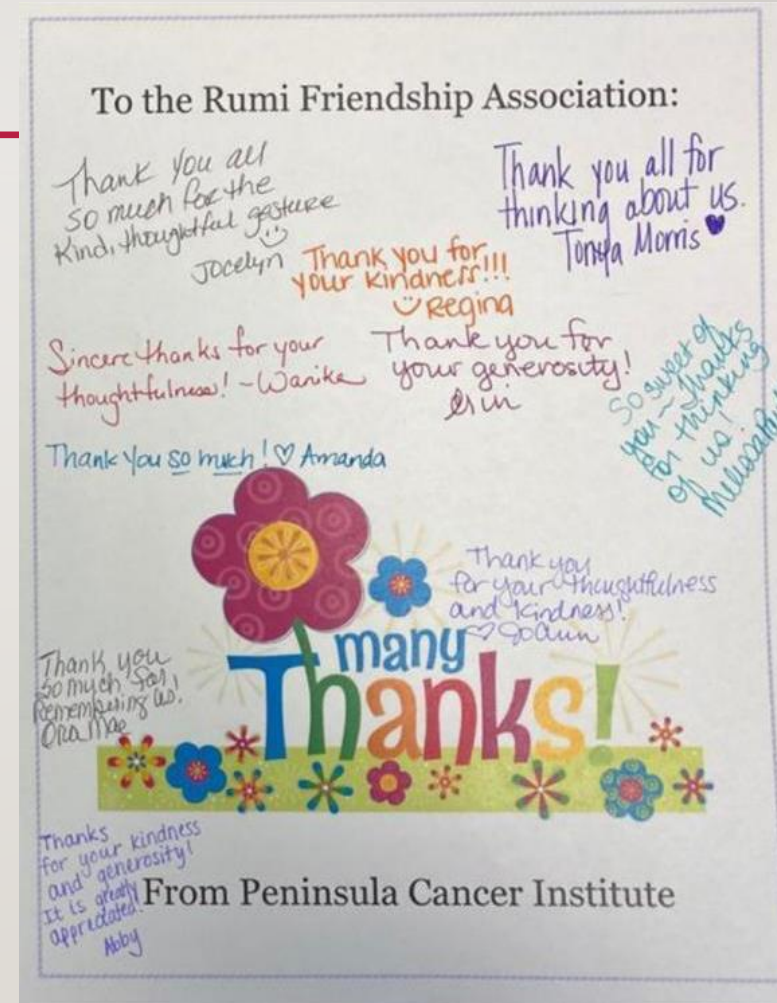 To the Rumi Friendship Association:
Thank you all
so much for the
kind, thoughtful gesture
Jocelyn
Thank you all for
thinking about us.
Tonya Morris
Thank you for
your kindness!!!
Regina
Sincere thanks for your
thoughtfulness! ~Wanika
Thank you for
your generosity!
Erin
So sweet of
you ~ thanks
for thinking
of us!
Melissa
Thank you so much! Amanda
Thank you
for your thoughtfulness
and kindness!
JoAnn
many
Thanks!
Thank you
so much for
Remembering us!
Ora Mae
Thanks
for your kindness
and generosity!
It is greatly
appreciated!
Abby
From Peninsula Cancer Institute